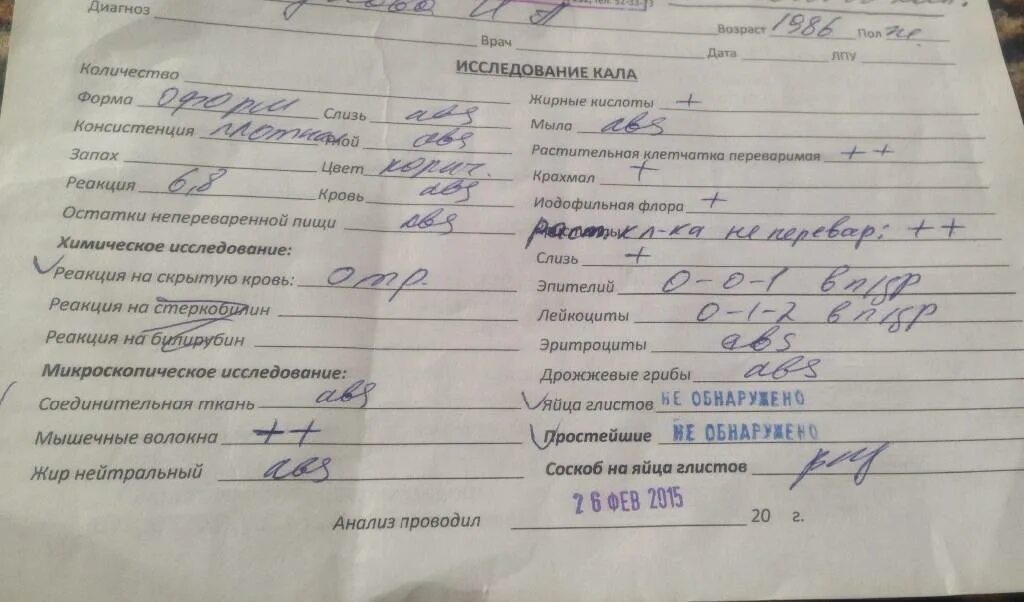 Диагноз
тел. 52-33-
Возраст 1986 Пол ж.
Врач Дата ЛПУ
ИССЛЕДОВАНИЕ КАЛА
Количество
Форма оформ Слизь abs
Консистенция плотная Гной abs
Запах Цвет корич.
Реакция 6,8 Кровь abs
Остатки непереваренной пищи abs
Химическое исследование:
Реакция на скрытую кровь: отр.
Реакция на стеркобилин
Реакция на билирубин
Микроскопическое исследование:
Соединительная ткань abs
Мышечные волокна ++
Жир нейтральный abs
Жирные кислоты +
Мыла abs
Растительная клетчатка переваримая ++
Крахмал +
Иодофильная флора +
Раст. кл-ка неперевар: ++
Слизь +
Эпителий 0-0-1 в п/зр
Лейкоциты 0-1-2 в п/зр
Эритроциты abs
Дрожжевые грибы abs
Яйца глистов НЕ ОБНАРУЖЕНО
Простейшие НЕ ОБНАРУЖЕНО
Соскоб на яйца глистов
26 ФЕВ 2015
Анализ проводил 20 г.